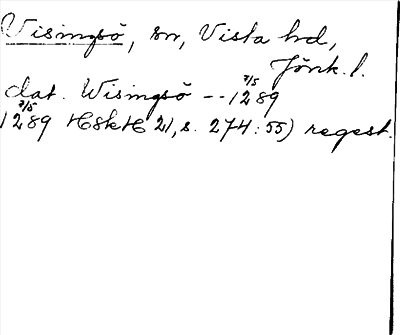 Visingsö, sn, Vista hd,
Jönk. l.
dat. Wisingsö -- 7/5 1289
7/5 1289 HSkH 21, s. 274:55) regest.